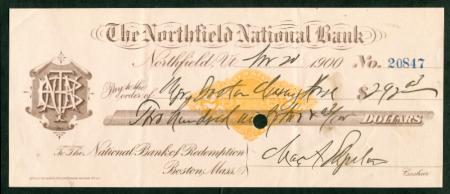 The Northfield National Bank
Northfield, Vt. Nov 20 1900 No. 20847
Pay to the order of $292
Two hundred ninety two DOLLARS
To The National Bank of Redemption
Boston, Mass. Cashier